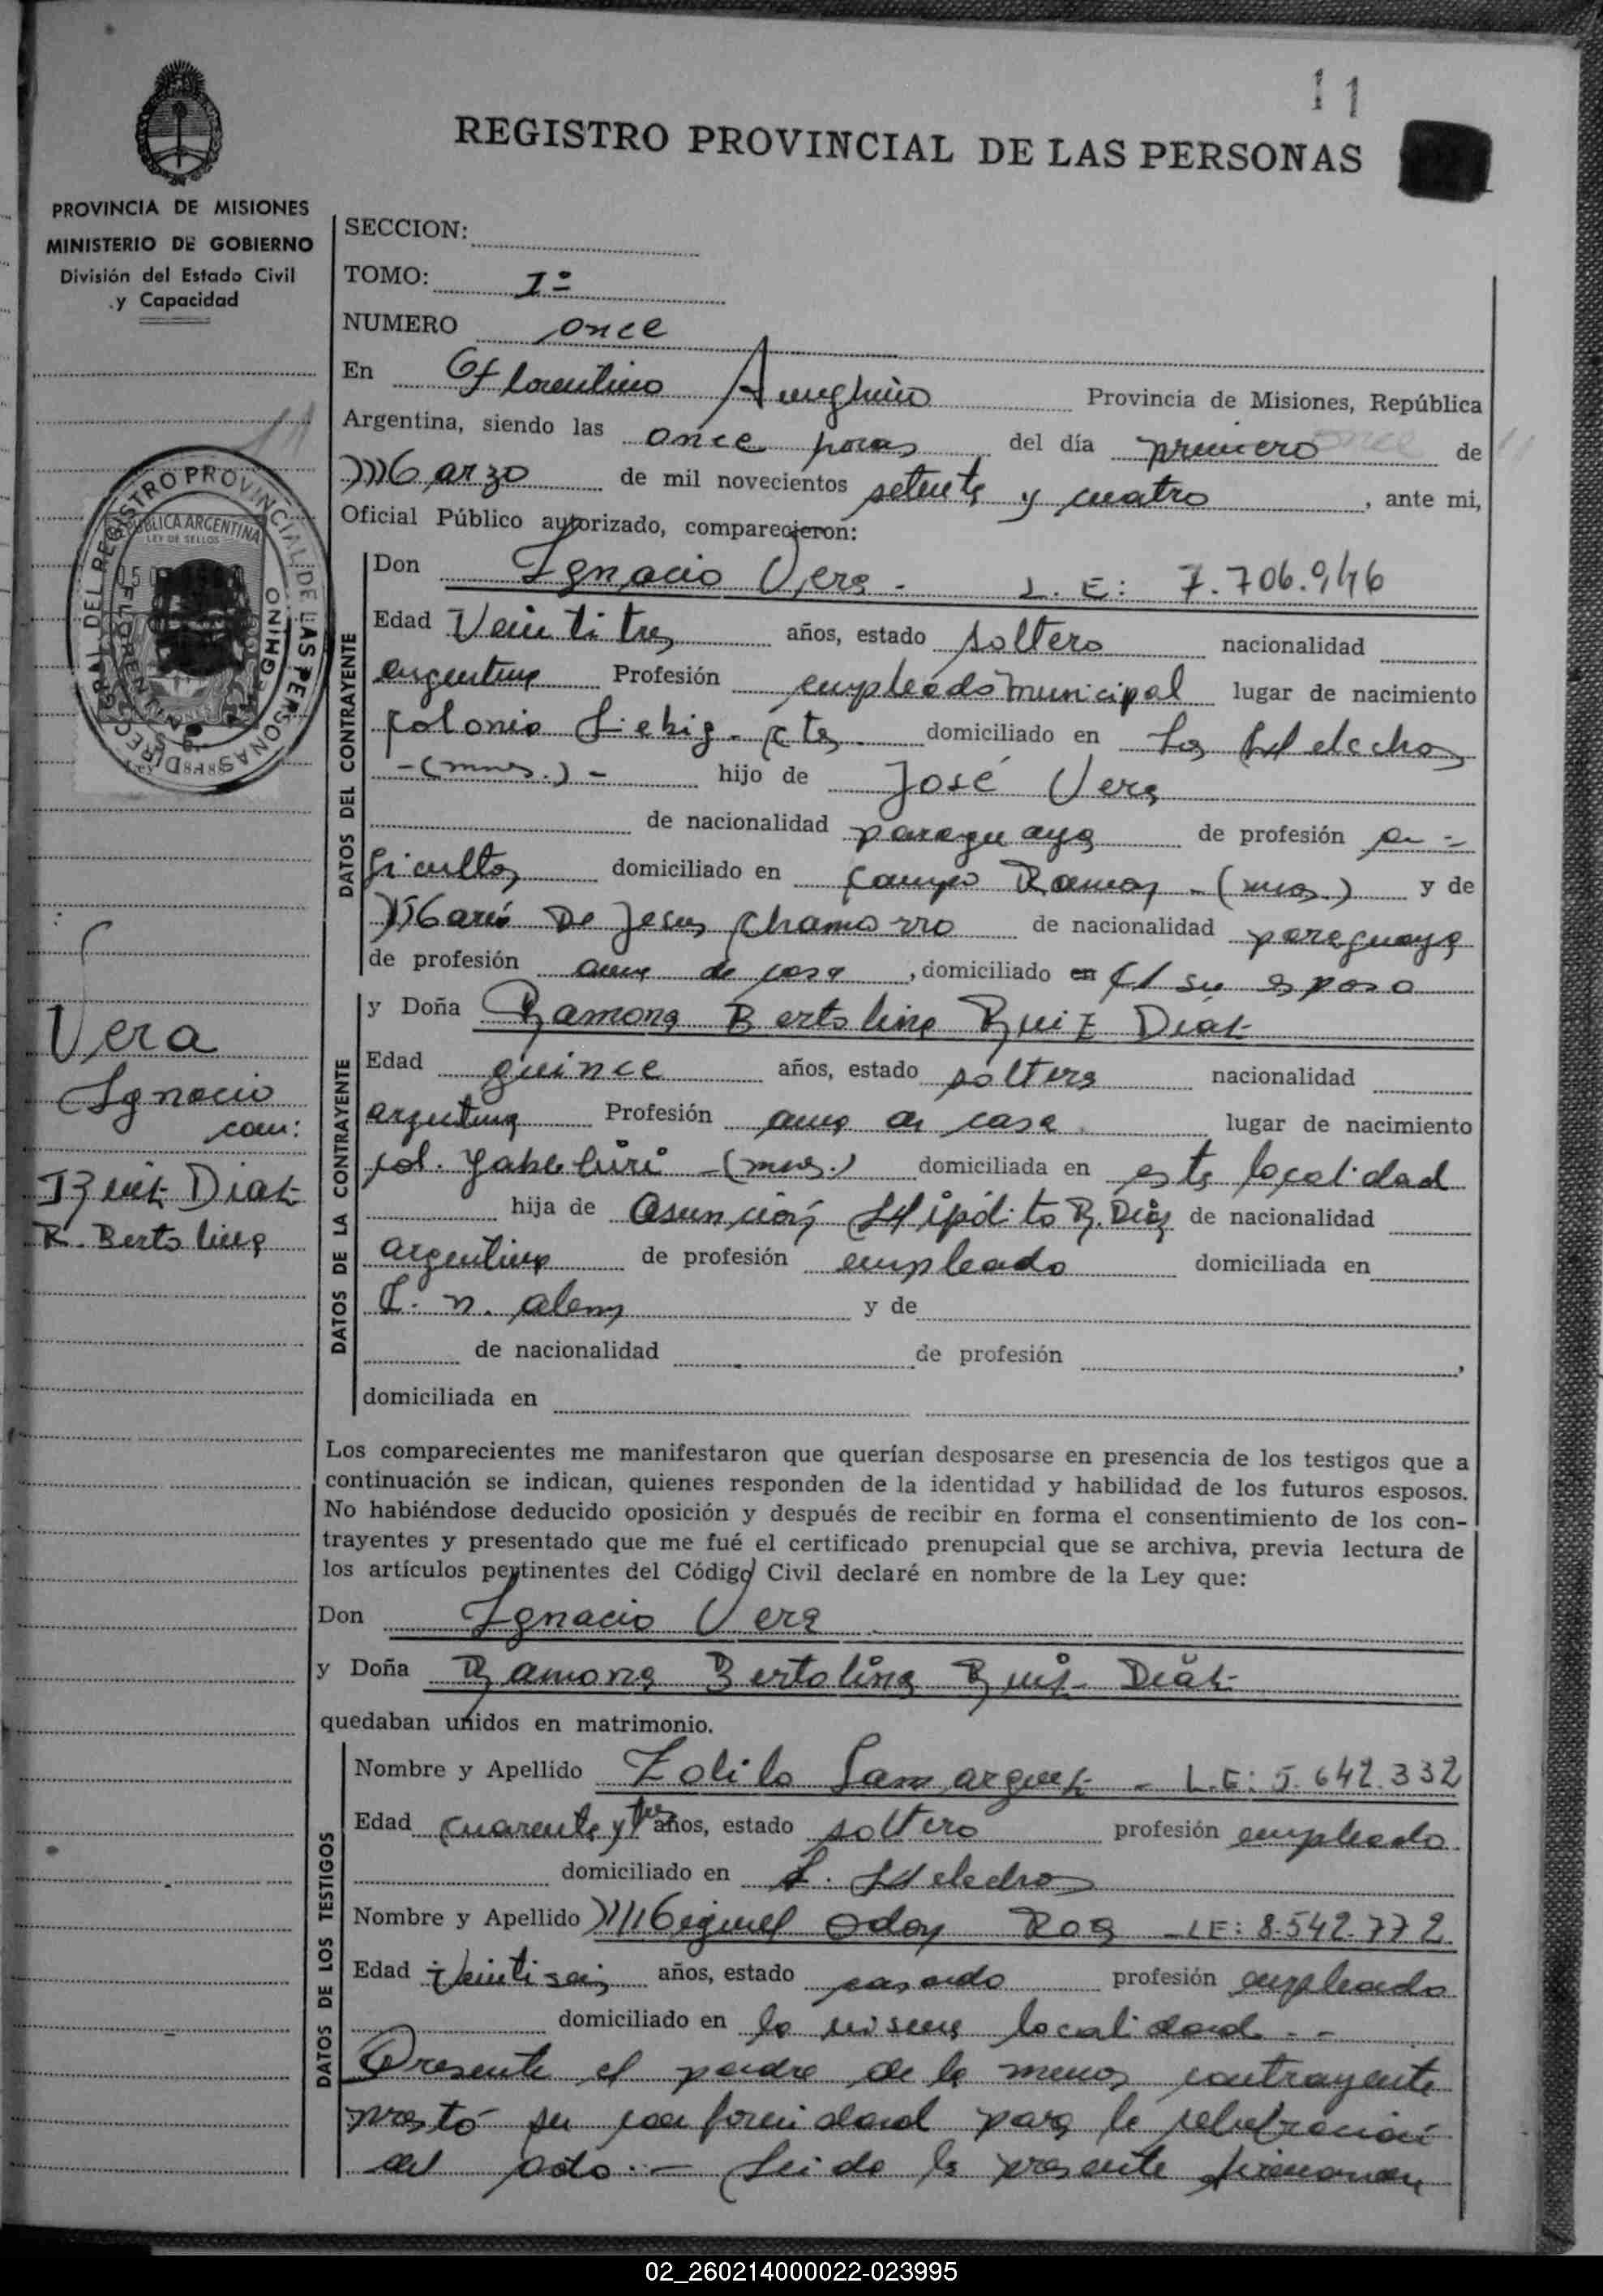 11
REGISTRO PROVINCIAL DE LAS PERSONAS
PROVINCIA DE MISIONES
MINISTERIO DE GOBIERNO
División del Estado Civil
y Capacidad
SECCION:
TOMO: 1º
NUMERO once
En Florentino Ameghino Provincia de Misiones, República
Argentina, siendo las once horas del día primero de
Marzo de mil novecientos setenta y cuatro, ante mi,
Oficial Público autorizado, comparecieron:
DATOS DEL CONTRAYENTE
Don Ignacio Vera - L. E: 7.706.946
Edad Veintitres años, estado soltero nacionalidad
argentina Profesión empleado municipal lugar de nacimiento
Colonia Liebig - Ctes domiciliado en Los Helechos
-(mnes.)- hijo de José Vera
de nacionalidad paraguaya de profesión a-
gricultor domiciliado en Campo Ramon - (mnes.) y de
Maria De Jesus Chamorro de nacionalidad paraguaya
de profesión ama de casa, domiciliado en c/ su esposo
DATOS DE LA CONTRAYENTE
y Doña Ramona Bertolina Ruiz Diaz
Edad quince años, estado soltera nacionalidad
argentina Profesión ama de casa lugar de nacimiento
Col. Yabebiri - (mnes.) domiciliada en esta localidad
hija de Asunción Hipólito R. Diaz de nacionalidad
argentina de profesión empleado domiciliada en
L. n. alem y de
de nacionalidad de profesión ,
domiciliada en
Vera
Ignacio
con:
Ruiz Diaz
R. Bertolina
Los comparecientes me manifestaron que querían desposarse en presencia de los testigos que a
continuación se indican, quienes responden de la identidad y habilidad de los futuros esposos.
No habiéndose deducido oposición y después de recibir en forma el consentimiento de los con-
trayentes y presentado que me fué el certificado prenupcial que se archiva, previa lectura de
los artículos pertinentes del Código Civil declaré en nombre de la Ley que:
Don Ignacio Vera
y Doña Ramona Bertolina Ruiz Diaz
quedaban unidos en matrimonio.
DATOS DE LOS TESTIGOS
Nombre y Apellido Zoilo - L.E: 5.642.332
Edad cuarenta y tres años, estado soltero profesión empleado
domiciliado en L. Helechos
Nombre y Apellido Miguel Odon Roa - LE: 8.542.772
Edad veintiseis años, estado casado profesión empleado
domiciliado en la misma localidad. --
Presente el padre de la menor contrayente
prestó su conformidad para la celebración
del acto.- Leida la presente firmaron
02_260214000022-023995